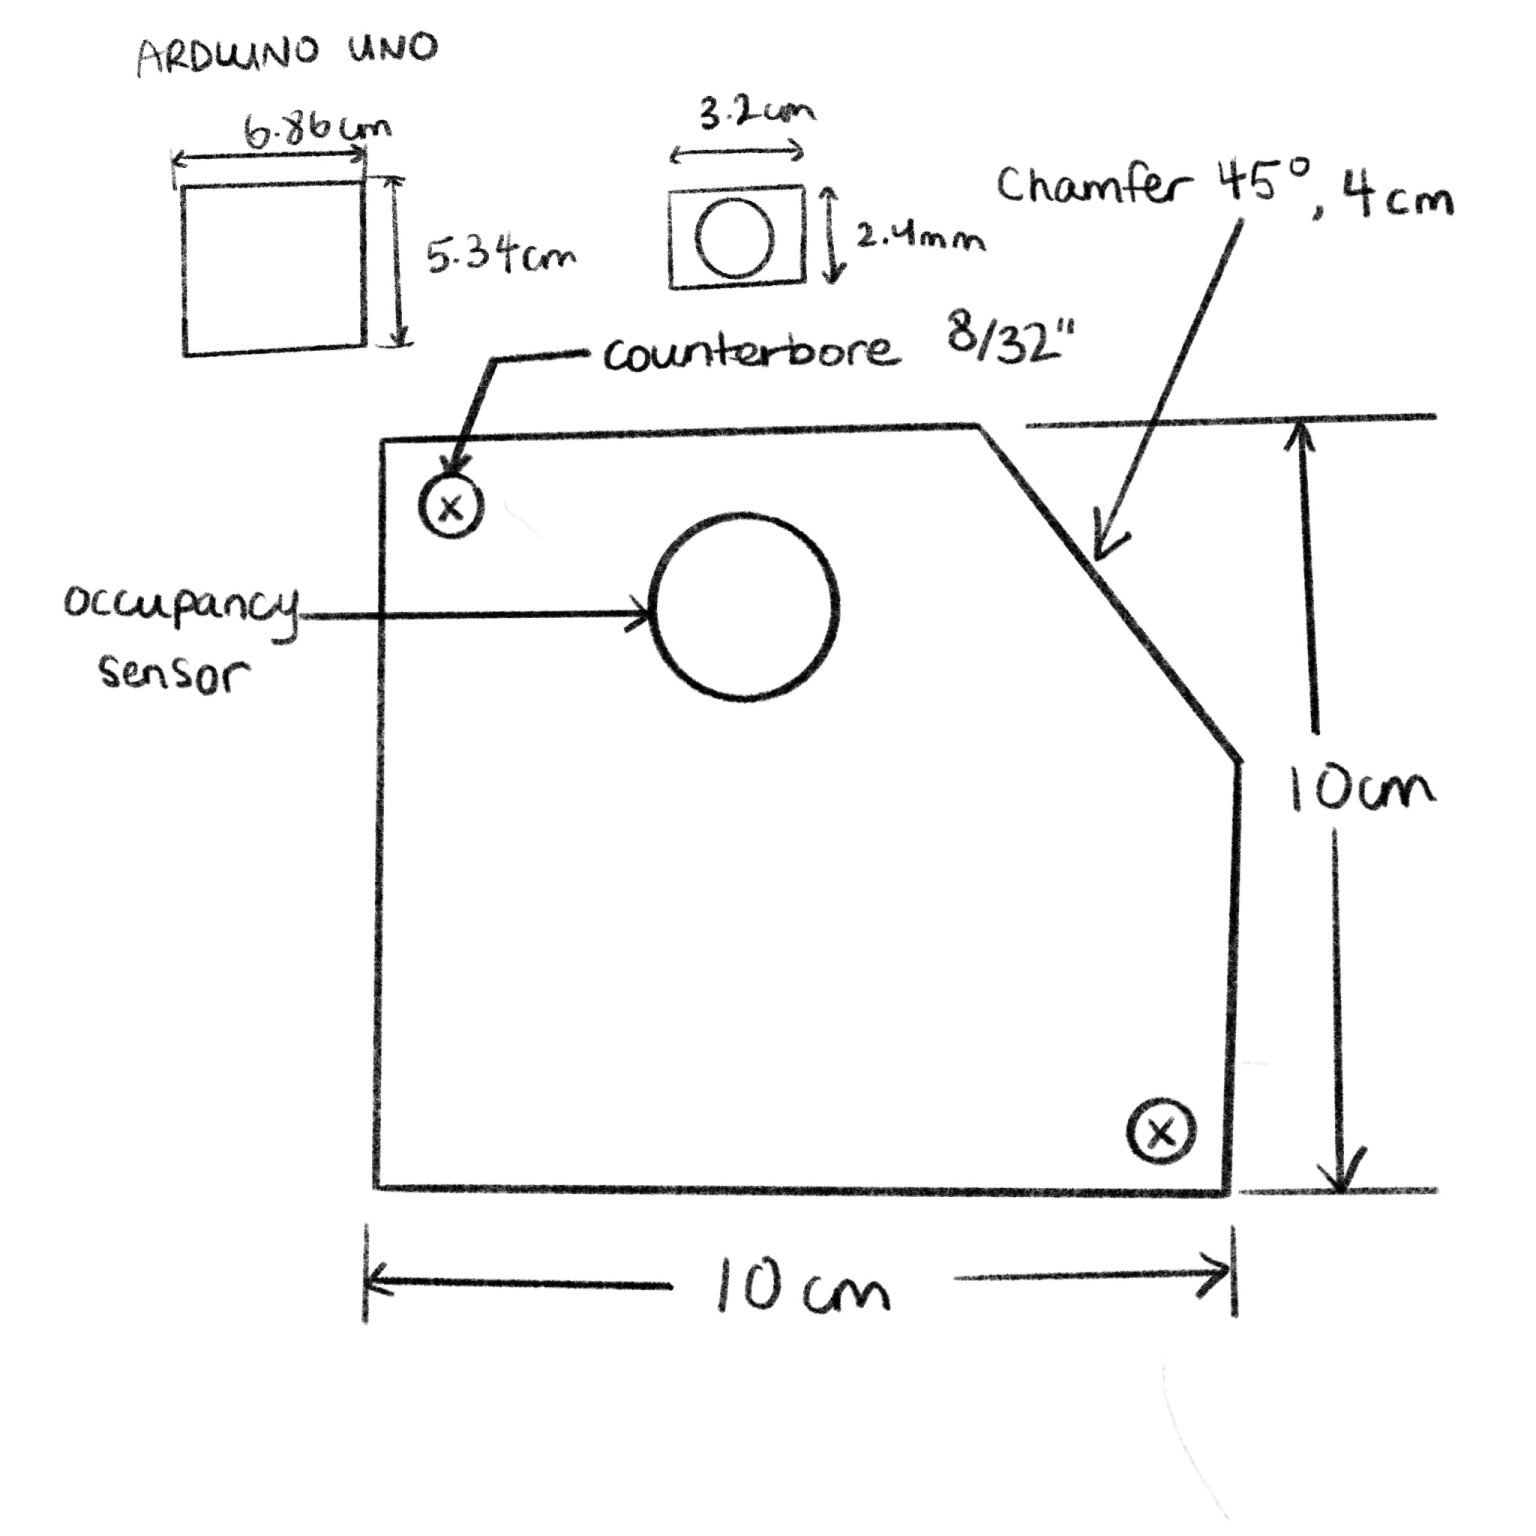 ARDUINO UNO
6.86cm
5.34cm
3.2cm
2.4mm
Chamfer 45°, 4cm
counterbore 8/32"
x
occupancy
sensor
10cm
x
10cm